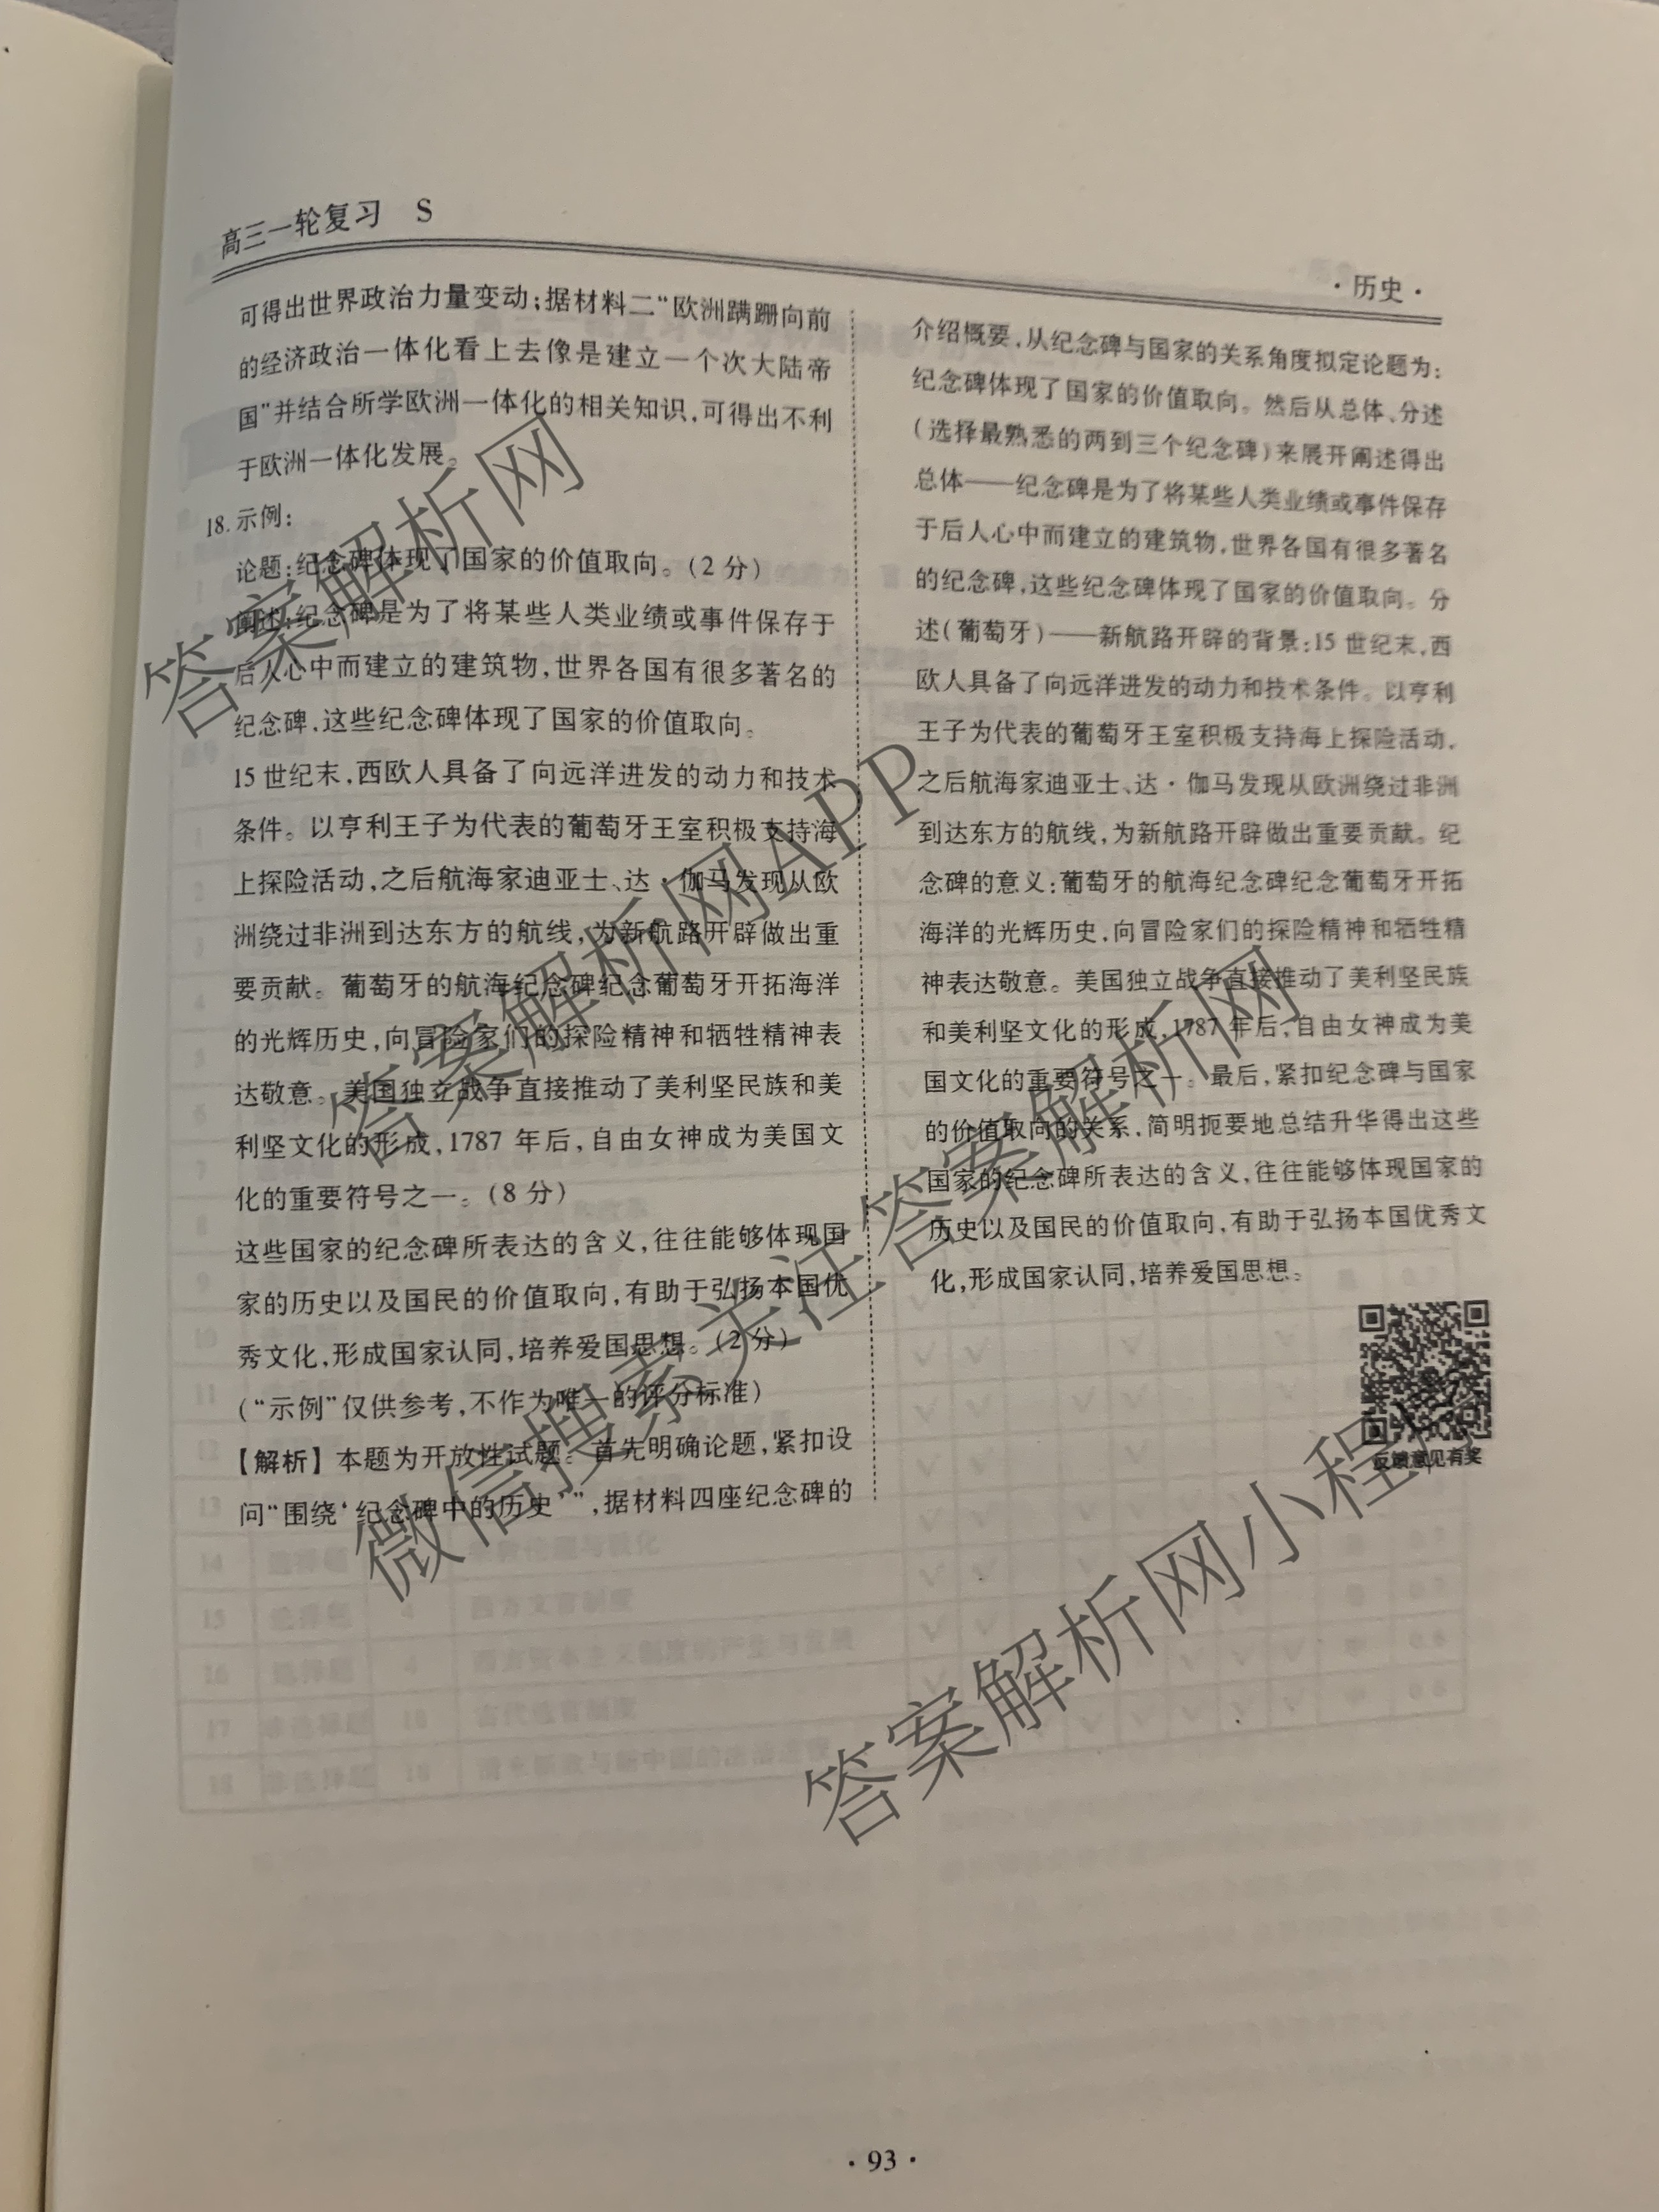 高三一轮复习 S
·历史·
可得出世界政治力量变动;据材料二“欧洲蹒跚向前
的经济政治一体化看上去像是建立一个次大陆帝
国”并结合所学欧洲一体化的相关知识,可得出不利
于欧洲一体化发展。
18. 示例:
论题:纪念碑体现了国家的价值取向。(2分)
阐述:纪念碑是为了将某些人类业绩或事件保存于
后人心中而建立的建筑物,世界各国有很多著名的
纪念碑,这些纪念碑体现了国家的价值取向。
15世纪末,西欧人具备了向远洋进发的动力和技术
条件。以亨利王子为代表的葡萄牙王室积极支持海
上探险活动,之后航海家迪亚士、达·伽马发现从欧
洲绕过非洲到达东方的航线,为新航路开辟做出重
要贡献。葡萄牙的航海纪念碑纪念葡萄牙开拓海洋
的光辉历史,向冒险家们的探险精神和牺牲精神表
达敬意。美国独立战争直接推动了美利坚民族和美
利坚文化的形成,1787年后,自由女神成为美国文
化的重要符号之一。(8分)
这些国家的纪念碑所表达的含义,往往能够体现国
家的历史以及国民的价值取向,有助于弘扬本国优
秀文化,形成国家认同,培养爱国思想。(2分)
(“示例”仅供参考,不作为唯一的评分标准)
【解析】本题为开放性试题。首先明确论题,紧扣设
问“围绕‘纪念碑中的历史’”,据材料四座纪念碑的
介绍概要,从纪念碑与国家的关系角度拟定论题为:
纪念碑体现了国家的价值取向。然后从总体、分述
(选择最熟悉的两到三个纪念碑)来展开阐述得出
总体——纪念碑是为了将某些人类业绩或事件保存
于后人心中而建立的建筑物,世界各国有很多著名
的纪念碑,这些纪念碑体现了国家的价值取向。分
述(葡萄牙)——新航路开辟的背景:15世纪末,西
欧人具备了向远洋进发的动力和技术条件。以亨利
王子为代表的葡萄牙王室积极支持海上探险活动,
之后航海家迪亚士、达·伽马发现从欧洲绕过非洲
到达东方的航线,为新航路开辟做出重要贡献。纪
念碑的意义:葡萄牙的航海纪念碑纪念葡萄牙开拓
海洋的光辉历史,向冒险家们的探险精神和牺牲精
神表达敬意。美国独立战争直接推动了美利坚民族
和美利坚文化的形成,1787年后,自由女神成为美
国文化的重要符号之一。最后,紧扣纪念碑与国家
的价值取向的关系,简明扼要地总结升华得出这些
国家的纪念碑所表达的含义,往往能够体现国家的
历史以及国民的价值取向,有助于弘扬本国优秀文
化,形成国家认同,培养爱国思想。
反馈意见有奖
·93·
答案解析网
答案解析网APP
微信搜索关注答案解析网
答案解析网小程序